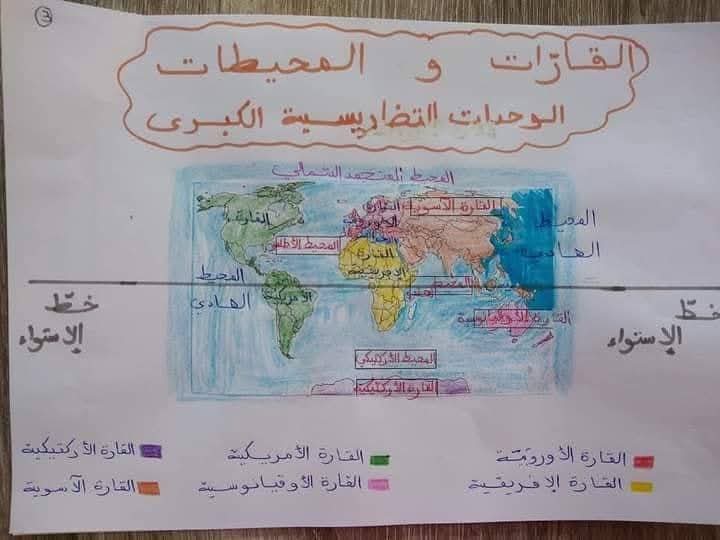 3
القارّات و المحيطات
الوحدات التضاريسية الكبرى
المحيط المتجمد الشمالي
القارة الآسوية
القارة
القارة
المحيط
الهادي
المحيط الأطلس
القارة
الإفريقية
المحيط
الهادي
الأمريكية
خطّ
الإستواء
خطّ
الإستواء
القارة الأوقيانوسية
المحيط الأركتيكي
القارة الأركتيكية
القارة الأوروبية
القارة الأمريكية
القارة الأركتيكية
القارة الإفريقية
القارة الأوقيانوسية
القارة الآسوية